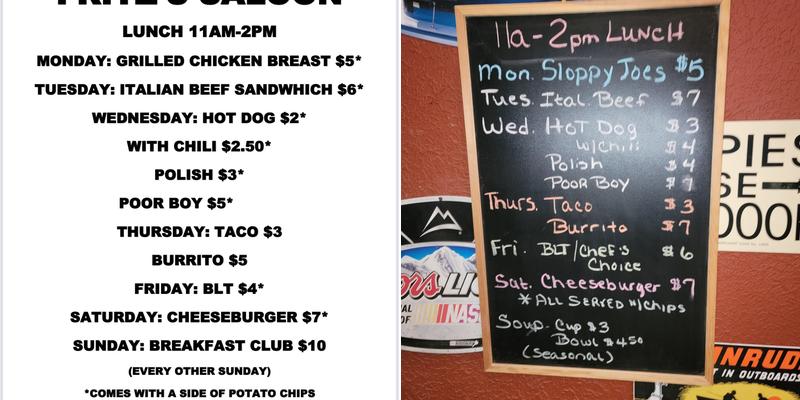 FRITZ'S SALOON
LUNCH 11AM-2PM
MONDAY: GRILLED CHICKEN BREAST $5*
TUESDAY: ITALIAN BEEF SANDWHICH $6*
WEDNESDAY: HOT DOG $2*
WITH CHILI $2.50*
POLISH $3*
POOR BOY $5*
THURSDAY: TACO $3
BURRITO $5
FRIDAY: BLT $4*
SATURDAY: CHEESEBURGER $7*
SUNDAY: BREAKFAST CLUB $10
(EVERY OTHER SUNDAY)
*COMES WITH A SIDE OF POTATO CHIPS
11a-2pm LUNCH
Mon. Sloppy Joes $5
Tues. Ital. Beef $7
Wed. HOT Dog $3
w/Chili $4
Polish $4
POOR BOY $7
Thurs. Taco $3
Burrito $7
Fri. BLT/Chef's $6
Choice
Sat. Cheeseburger $7
* ALL SERVED w/CHIPS
Soup- Cup $3
Bowl $4.50
(Seasonal)
PIES
SE
OOO
ors LIG
NAS
OF
NRUD
T IN OUTBOARDS